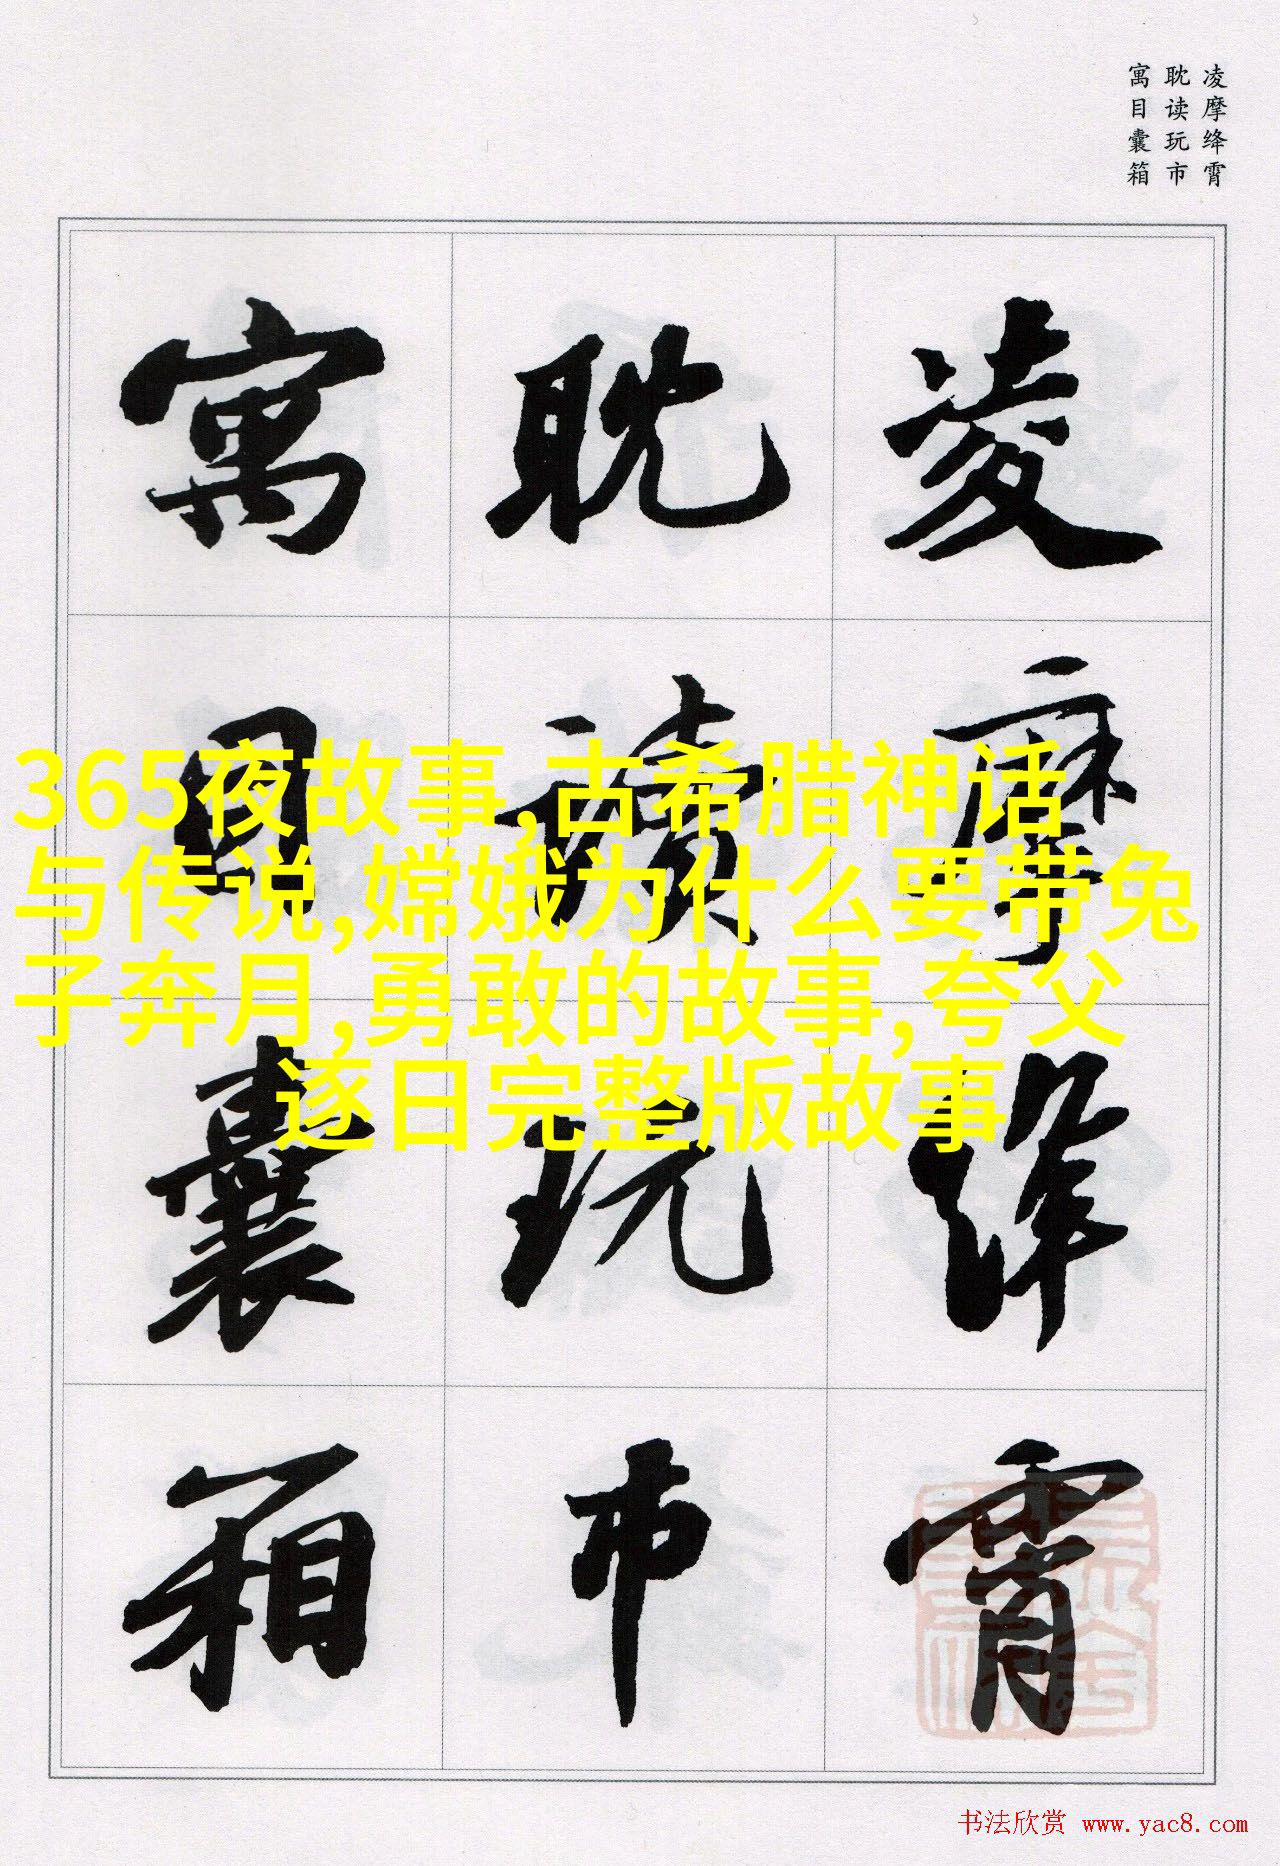 凌摩绛霄
耽读玩市
寓目囊箱
凌摩绛霄
耽讀玩市
寓目囊箱
365夜故事,古希腊神话
与传说,嫦娥为什么要带兔
子奔月,勇敢的故事,夸父
逐日完整版故事
书法欣赏 www.yac8.com